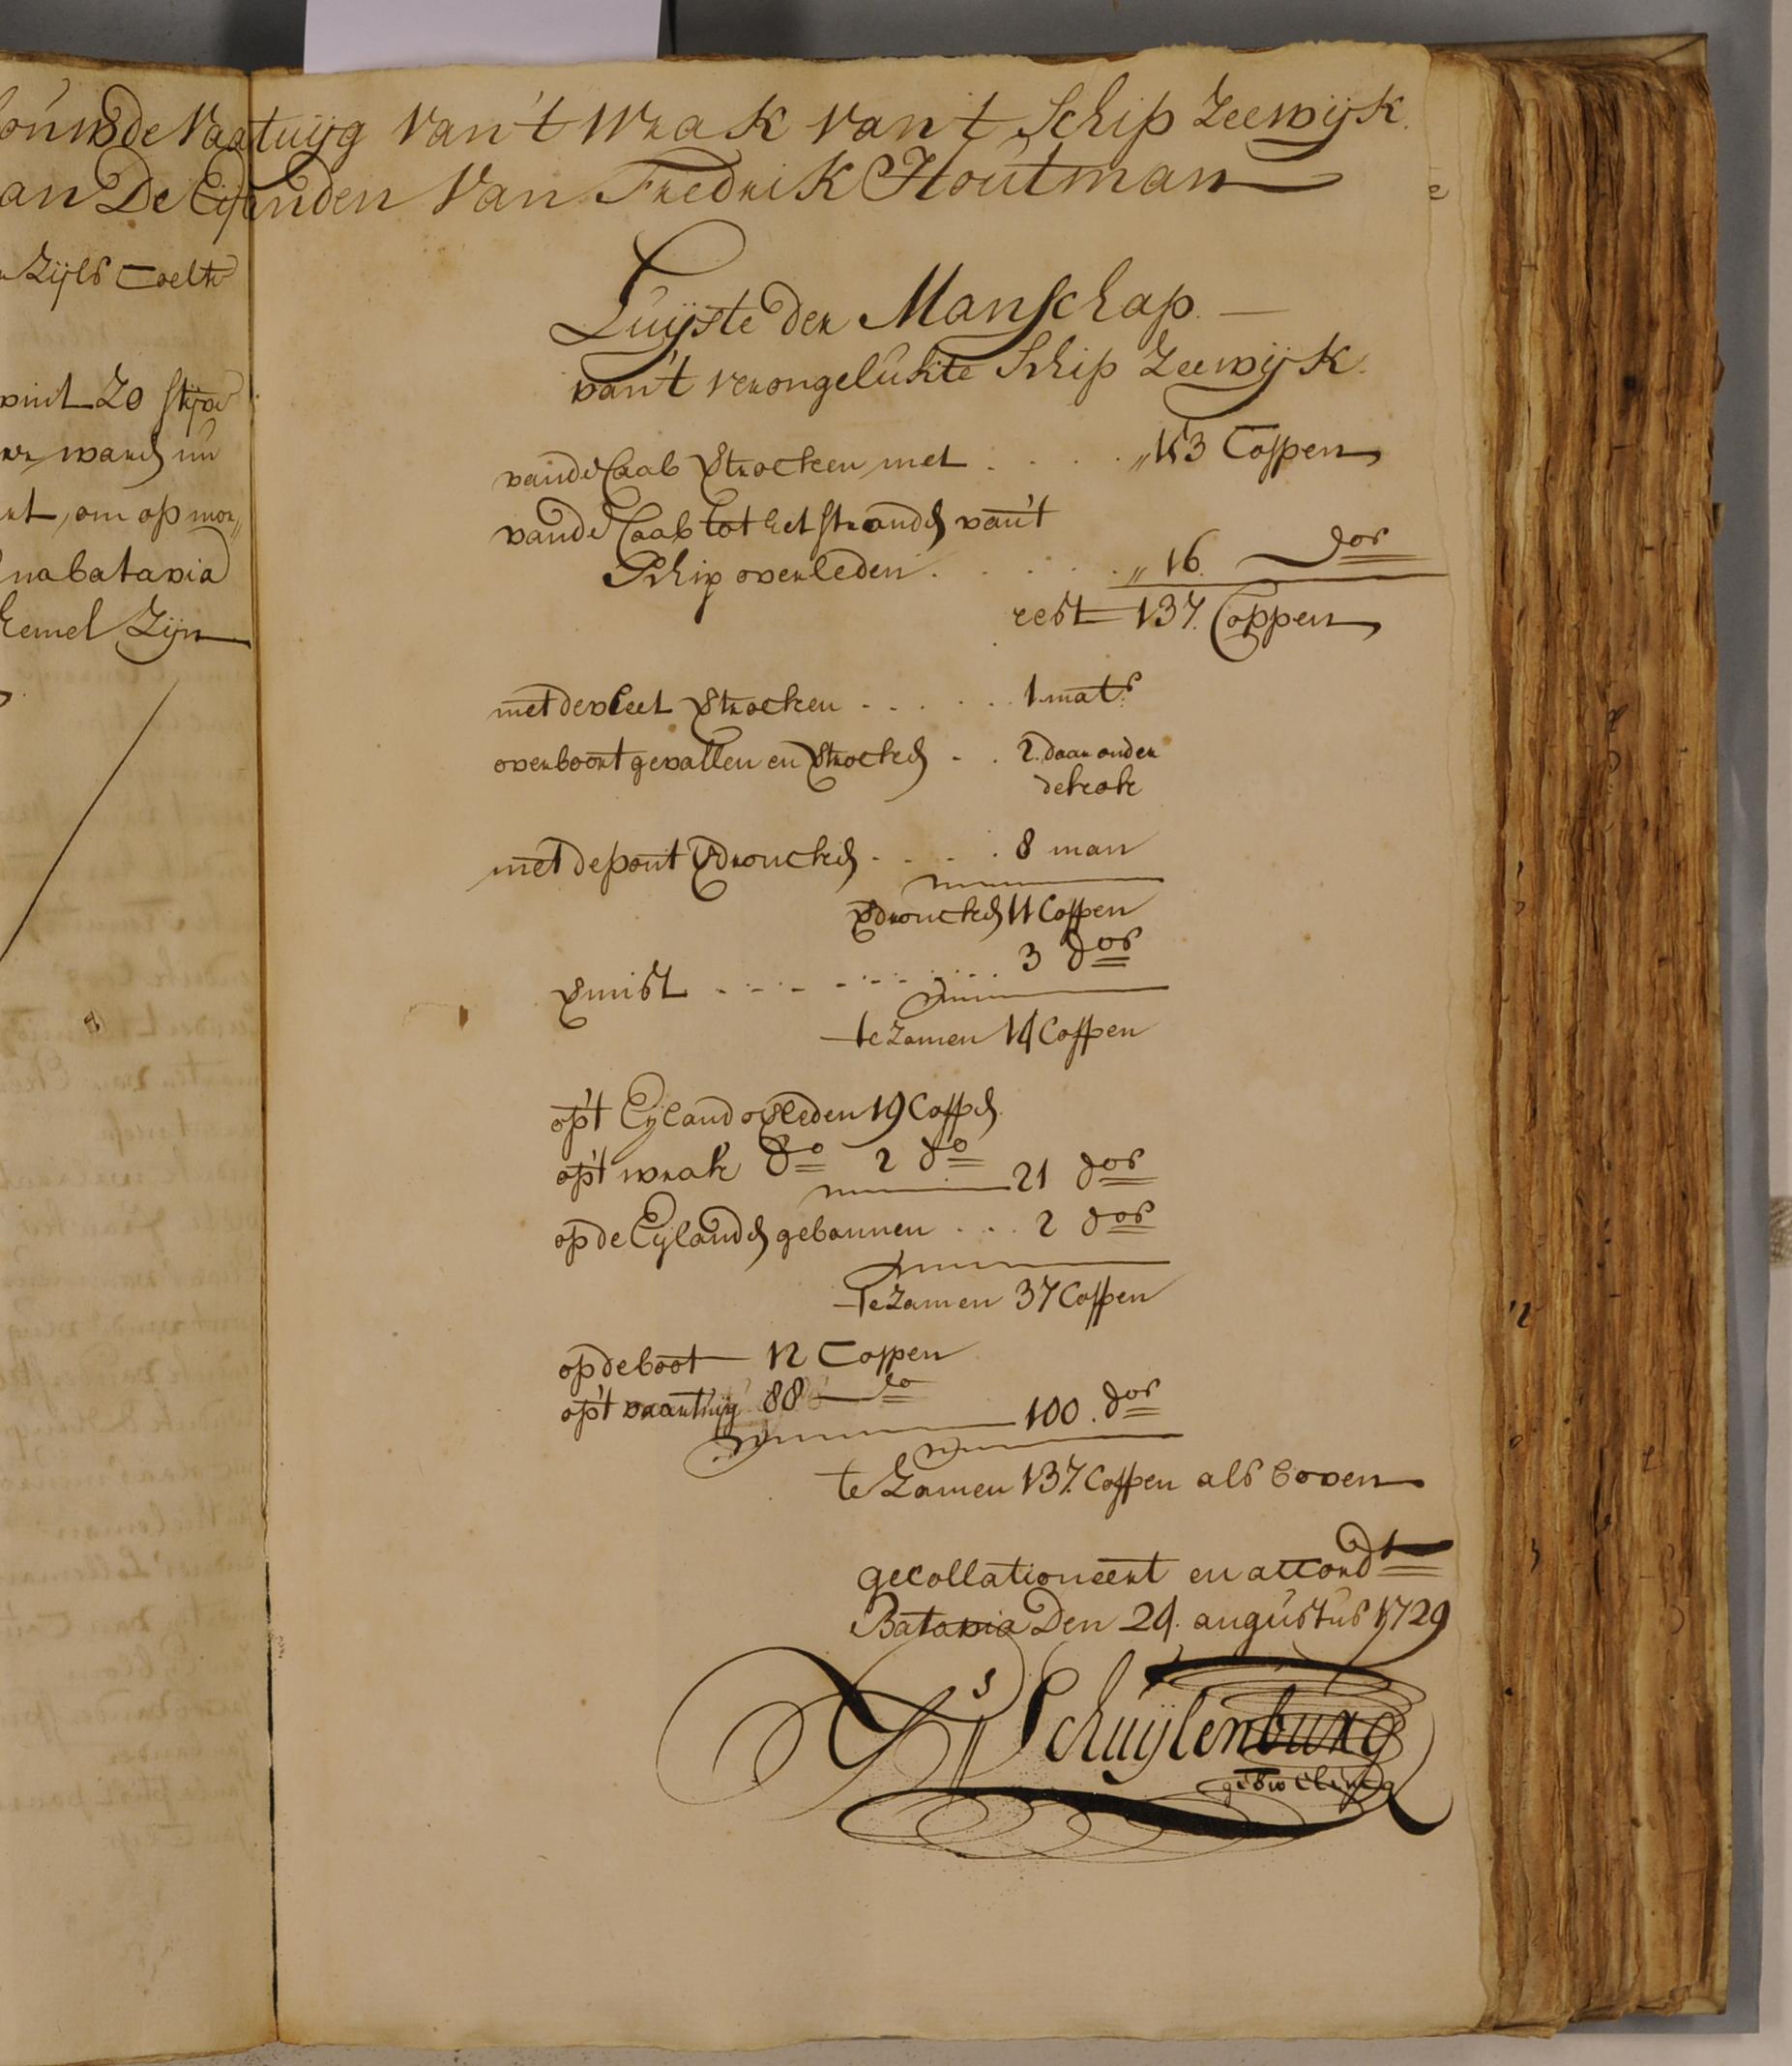 ouwde Vaatuijg Van't Wrak van t Schip Zeewijk.
an De Eijlanden Van Fredrik Houtman
Zijls Coelte
wint Zo stijve
wards nu
om op mor„
na batavia
hemel Zijn
Luijste der Manschap.
van't verongelukte Schip Zeewijk.
van de Caab vertrocken met . . . . „ 153 Coppen
van de Caab tot het strandn van't
Schip overleden . . . . . „ 16. dos
rest 137. Coppen
met de vleet vertrocken . . . . . . 1. mats
overboort gevallen en vertrockn . . 2. daar onder
de kok
met de pont verdronckn . . . . . 8 man
verdronckn 11 Coppen
vermist . . . . . . . . . . 3 dos
te zamen 14 Coppen
op't Eijland overleden 19 Coppn
op't wrak do 2 do 21 dos
op de Eijlandn gebannen . . . 2 dos
Te Zamen 37 Coppen
op de boot 12 Coppen
op't vaartuijg 88 do
100. dos
te Zamen 137. Coppen als boven
gecollationeert en accordt
Batavia Den 24. augustus 1729
Schuijlenburg